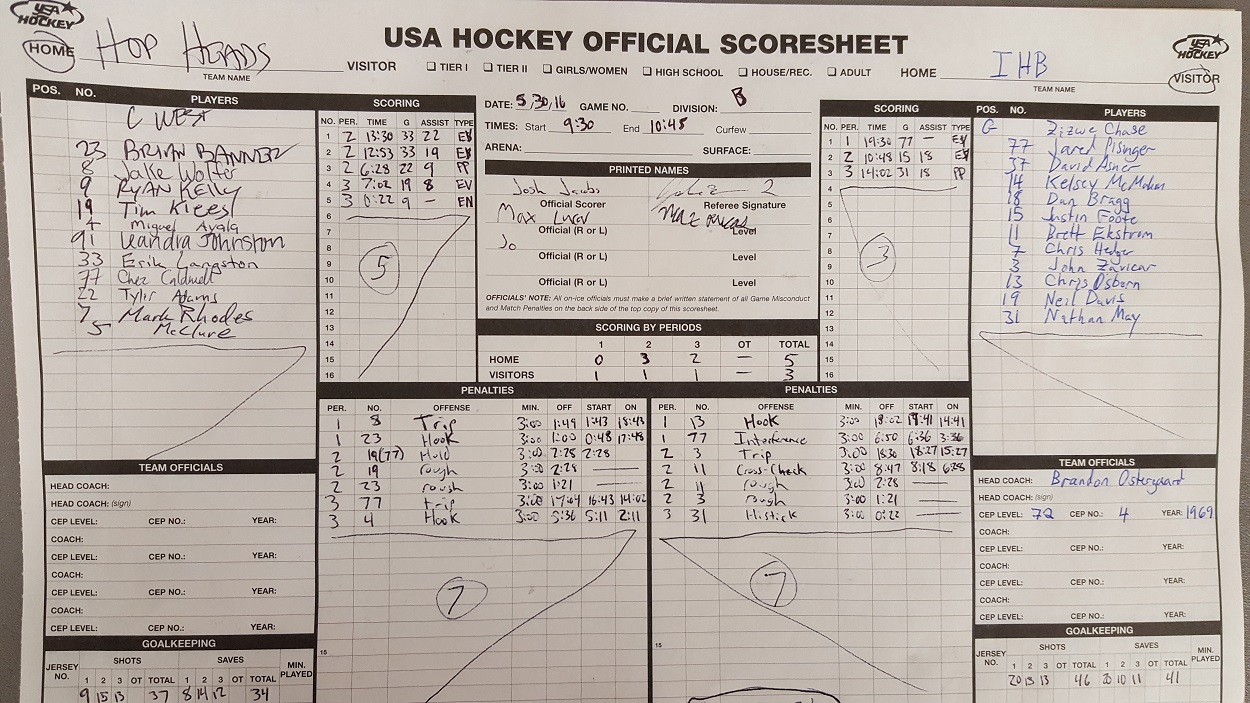 USA HOCKEY
USA HOCKEY OFFICIAL SCORESHEET
USA HOCKEY
HOME HOP HEADS
TEAM NAME
VISITOR
TIER I TIER II GIRLS/WOMEN HIGH SCHOOL HOUSE/REC. ADULT
HOME IHB
TEAM NAME
VISITOR
POS. NO. PLAYERS
C WEST
23 BRIAN
8 Jake Wolter
9 RYAN KELLY
19 Tim Kleest
4 Miguel Ayala
91 Leandra Johnston
33 Erik Langston
77 Chez Caldwell
22 Tyler Adams
7 Mark Rhodes
5 McClure
SCORING
NO. PER. TIME G ASSIST TYPE
1 2 13:30 33 22 EV
2 2 12:53 33 19 EV
3 2 6:28 22 9 PP
4 3 7:02 19 8 EV
5 3 0:22 9 - EN
6
7
8
9
10
11
12
13
14
15
16
5
DATE: 5/30/16 GAME NO. DIVISION: B
TIMES: Start 9:30 End 10:45 Curfew
ARENA: SURFACE:
PRINTED NAMES
Josh Jacobs
Official Scorer Referee Signature
Max
Official (R or L) Level
Jo
Official (R or L) Level
Official (R or L) Level
OFFICIALS' NOTE: All on-ice officials must make a brief written statement of all Game Misconduct
and Match Penalties on the back side of the top copy of this scoresheet.
SCORING BY PERIODS
1 2 3 OT TOTAL
HOME 0 3 2 — 5
VISITORS 1 1 1 — 3
SCORING
NO. PER. TIME G ASSIST TYPE
1 1 19:30 77 — EV
2 2 10:48 15 18 EV
3 3 14:02 31 18 PP
4
5
6
7
8
9
10
11
12
13
14
15
16
3
POS. NO. PLAYERS
G Zizwe Chase
77 Jared Pisinger
37 David Asner
14 Kelsey McMahan
18 Dan Bragg
15 Justin Foote
11 Brett Ekstrom
7 Chris Hedger
3 John Zavicar
13 Chris Osborn
19 Neil Davis
31 Nathan May
PENALTIES
PER. NO. OFFENSE MIN. OFF START ON
1 8 Trip 3:00 1:49 1:43 18:43
1 23 Hook 3:00 1:00 0:48 17:48
2 19(77) Hold 3:00 2:28 2:28
2 19 rough 3:00 2:28 —
2 23 rough 3:00 1:21 —
3 77 trip 3:00 17:04 16:43 14:02
3 4 Hook 3:00 5:36 5:11 2:11
7
15
PENALTIES
PER. NO. OFFENSE MIN. OFF START ON
1 13 Hook 3:00 18:02 14:41
1 77 Interference 3:00 6:50 6:36 3:36
2 3 Trip 3:00 1830 18:27 15:27
2 11 Cross-Check 3:00 8:47 8:18 6:28
2 11 rough 3:00 2:28 —
2 3 rough 3:00 1:21 —
3 31 Histick 3:00 0:22 —
7
15
TEAM OFFICIALS
HEAD COACH:
HEAD COACH: (sign)
CEP LEVEL: CEP NO.: YEAR:
COACH:
CEP LEVEL: CEP NO.: YEAR:
COACH:
CEP LEVEL: CEP NO.: YEAR:
COACH:
CEP LEVEL: CEP NO.: YEAR:
GOALKEEPING
JERSEY NO. SHOTS SAVES MIN. PLAYED
1 2 3 OT TOTAL 1 2 3 OT TOTAL
9 15 13 37 8 14 12 34
TEAM OFFICIALS
HEAD COACH: Brandon Ostergaard
HEAD COACH: (sign)
CEP LEVEL: 72 CEP NO.: 4 YEAR: 1969
COACH:
CEP LEVEL: CEP NO.: YEAR:
COACH:
CEP LEVEL: CEP NO.: YEAR:
COACH:
CEP LEVEL: CEP NO.: YEAR:
GOALKEEPING
JERSEY NO. SHOTS SAVES MIN. PLAYED
1 2 3 OT TOTAL 1 2 3 OT TOTAL
20 13 13 46 20 10 11 41